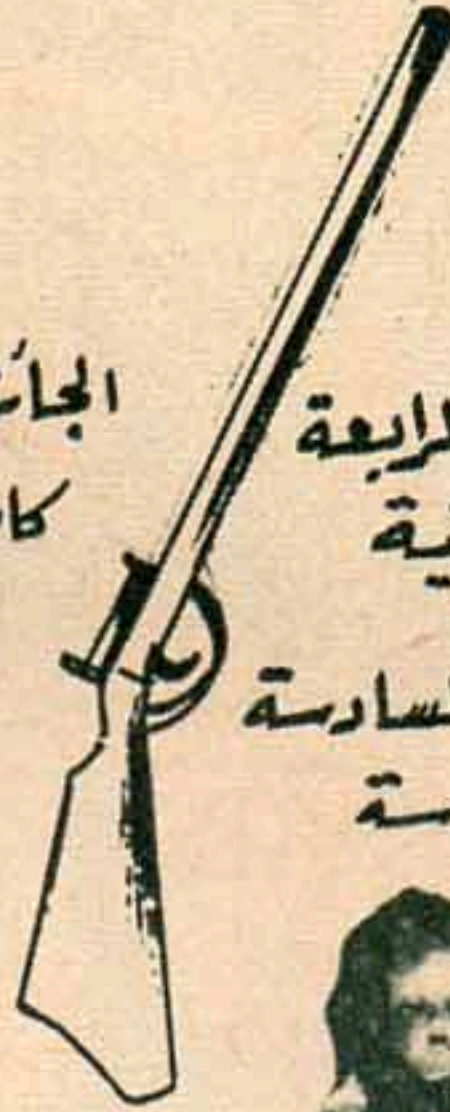 الجائ
كا
لرابعة
ية
لسادسة
سة